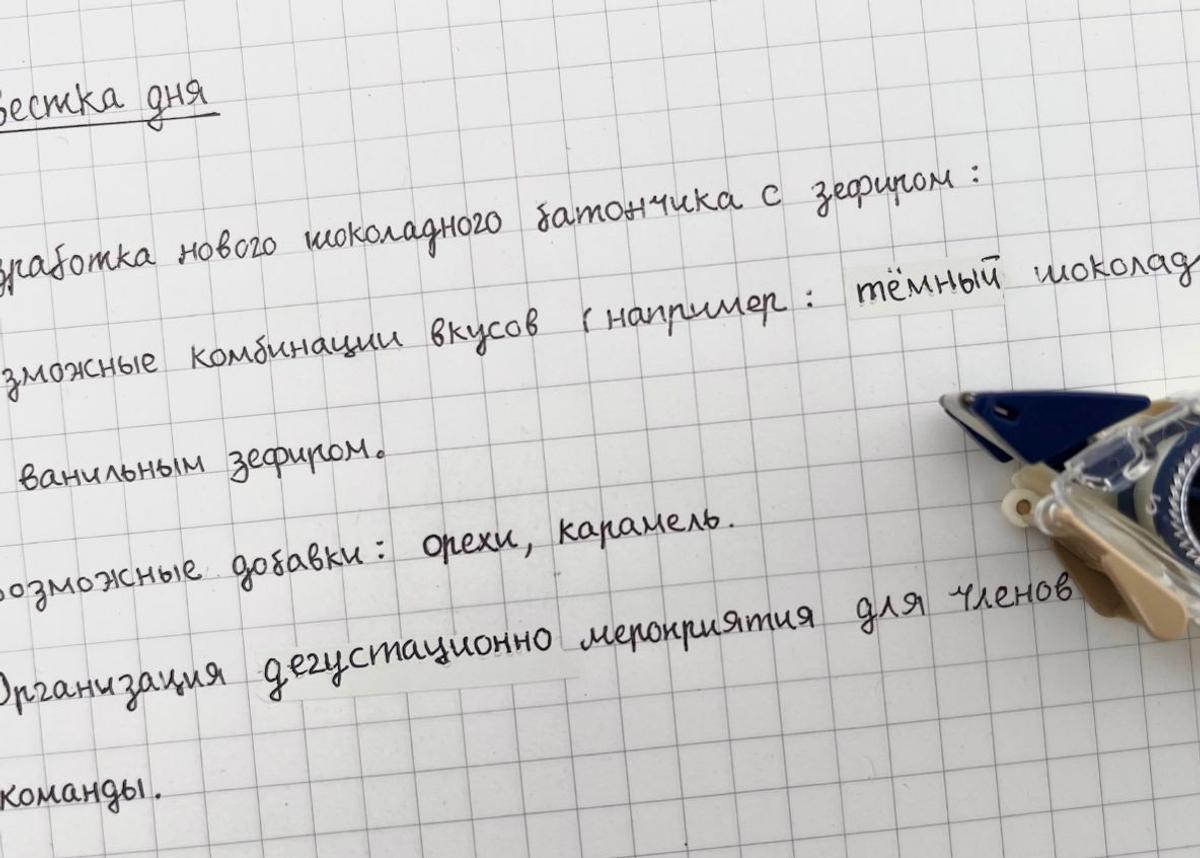 вестка дня
зработка нового шоколадного батончика с зефиром:
зможные комбинации вкусов (например: тёмный шоколад
ванильным зефиром.
возможные добавки: орехи, карамель.
Организация дегустационно мероприятия для членов
команды.